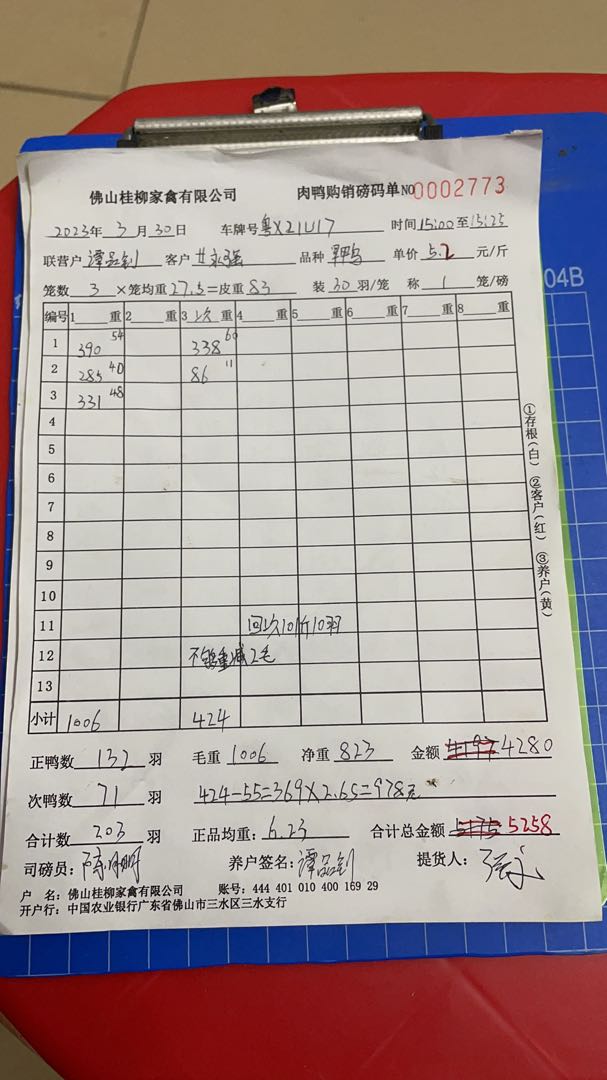 佛山桂柳家禽有限公司 肉鸭购销磅码单 NO 0002773
2023年 3月30日 车牌号 粤X21U17 时间15:00至15:25
联营户 谭品钊 客户 甘永强 品种 鸭 单价 5.2 元/斤
笼数 3 ×笼均重27.5=皮重 83 装 30 羽/笼 称 1 笼/磅
编号 1 重 2 重 3 次 重 4 重 5 重 6 重 7 重 8 重
1 390 54 338 60
2 285 40 86 11
3 331 48
4
5
6
7
8
9
10
11 回次101斤10羽
12 不够重减2毛
13
小计 1006 424
正鸭数 132 羽 毛重 1006 净重 823 金额 4280
次鸭数 71 羽 424-55=369×2.65=978元
合计数 203 羽 正品均重: 6.23 合计总金额 5175 5258
司磅员: 养户签名: 谭品钊 提货人:
户 名: 佛山桂柳家禽有限公司 账号: 444 401 010 400 169 29
开户行: 中国农业银行广东省佛山市三水区三水支行
①存根(白) ②客户(红) ③养户(黄)
04B